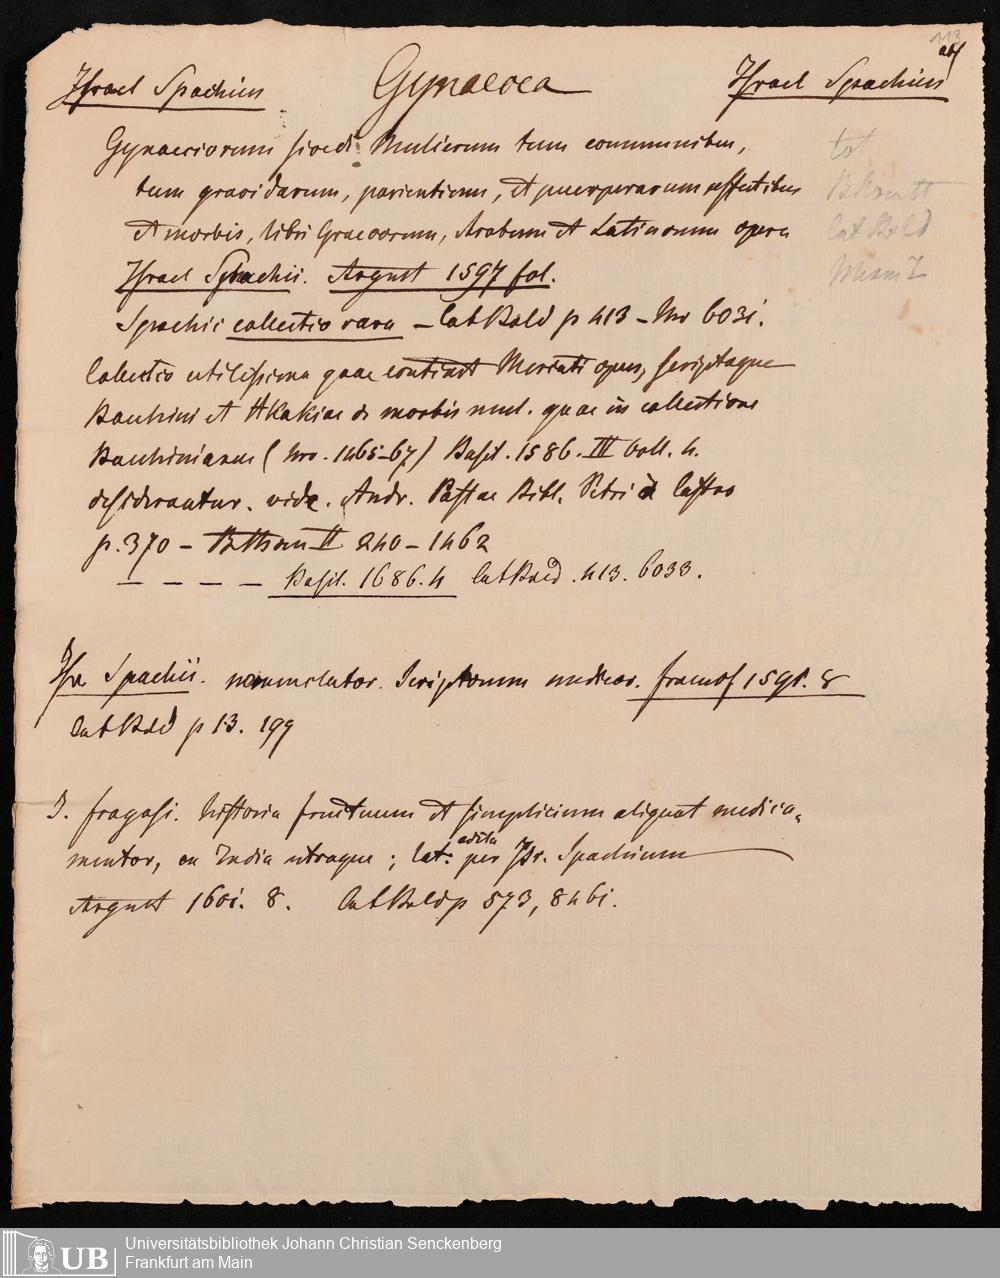 113
Israel Spachius Gynaecea Israel Spachius
Gynaeciorum sive di Mulierum tum communibus,
tum gravidarum, parientium, et puerperarum affectibus
et morbis, libri Graecorum, Arabum et Latinorum opera
Israel Spachii. Argent 1597 fol.
Spachii collectio rara – Cat Bald p 413 – Nr 6031.
Collectio utilissima quae continet Mercati opus, scriptaque
Bauhini et Akakiae de morbis mul. quae in collectione
Bauhiniana (Nro. 1465-67) Basil. 1586. III voll. 4.
desiderantur. vide. Andr. Pastae Bibl. Petri a Castro
p. 370 – II 240 – 1462
– – – – Basil. 1686. 4 Cat Bald. 413. 6033.
Isr Spachii. nomenclator. Scriptorum medicor. francof 1591. 8
Cat Bald p 13. 199
I. fragosi. historia fructuum et simplicium aliquot medica-
mentor, ex India utraque; lat. edita per Isr. Spachium
Argent 1601. 8. Cat Bald p 573, 8461.
tot
Cat Bald
UB Universitätsbibliothek Johann Christian Senckenberg
Frankfurt am Main